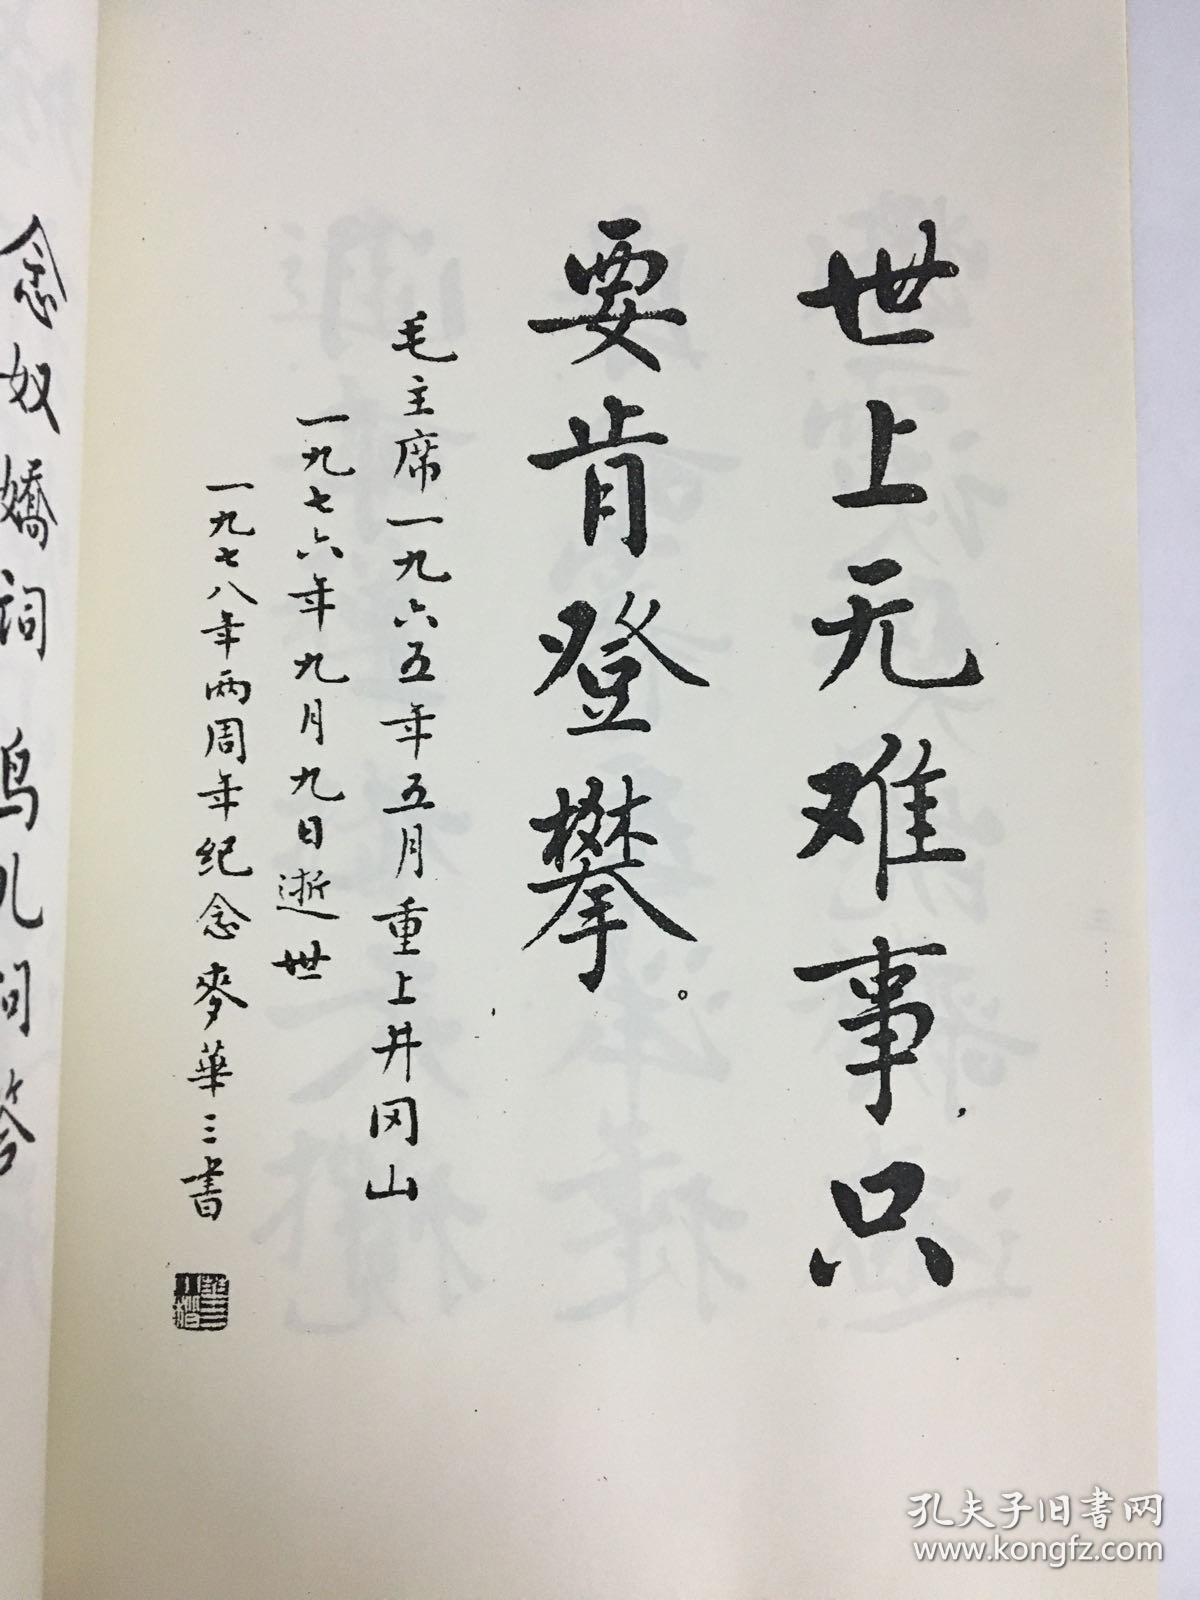 世上无难事，只
要肯登攀。
毛主席一九六五年五月重上井冈山，
一九七六年九月九日逝世
一九七八年两周年纪念 麥華三書
念奴嬌词 鸟儿问答
孔夫子旧书网
www.kongfz.com